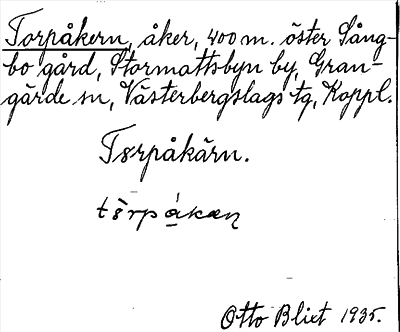 Torpåkern, åker, 400 m. öster Sång-
bo gård, Stormattsbyn by, Gran-
gärde sn, Västerbergslags tg, Koppl.
Tørpåkärn.
Otto Blixt 1935.